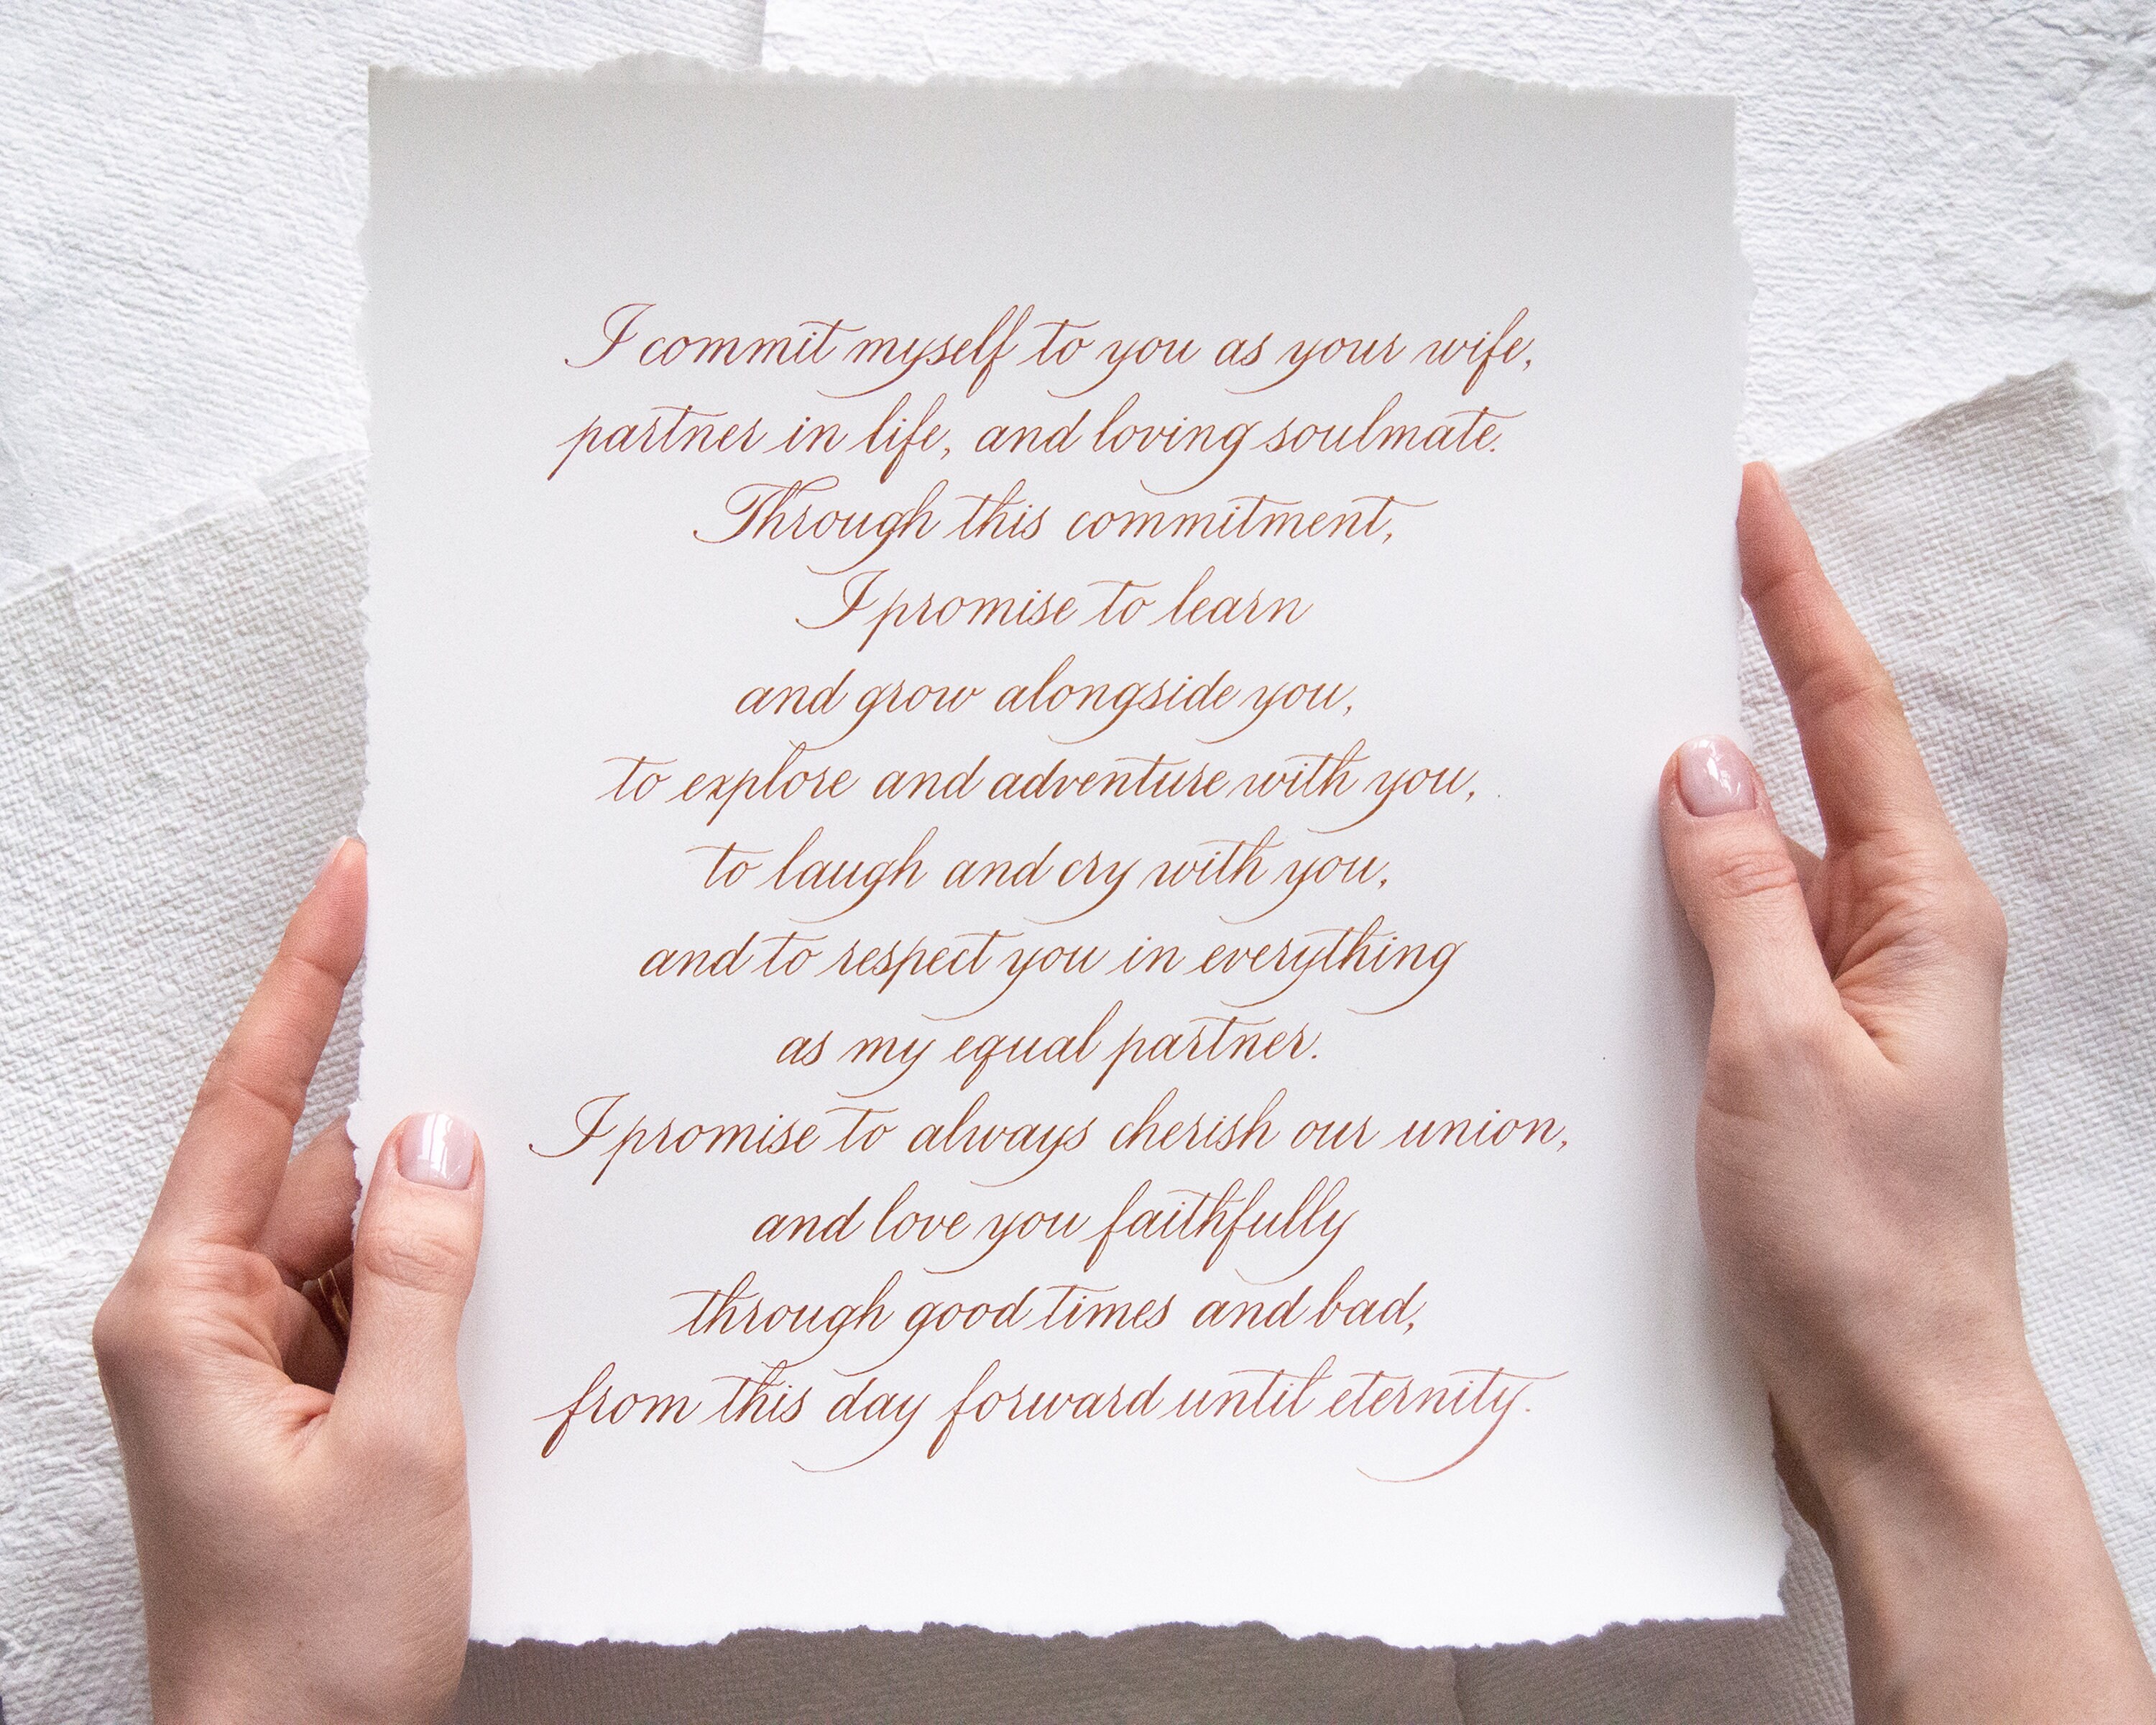 I commit myself to you as your wife,
partner in life, and loving soulmate.
Through this commitment,
I promise to learn
and grow alongside you,
to explore and adventure with you,
to laugh and cry with you,
and to respect you in everything
as my equal partner.
I promise to always cherish our union,
and love you faithfully
through good times and bad,
from this day forward until eternity.